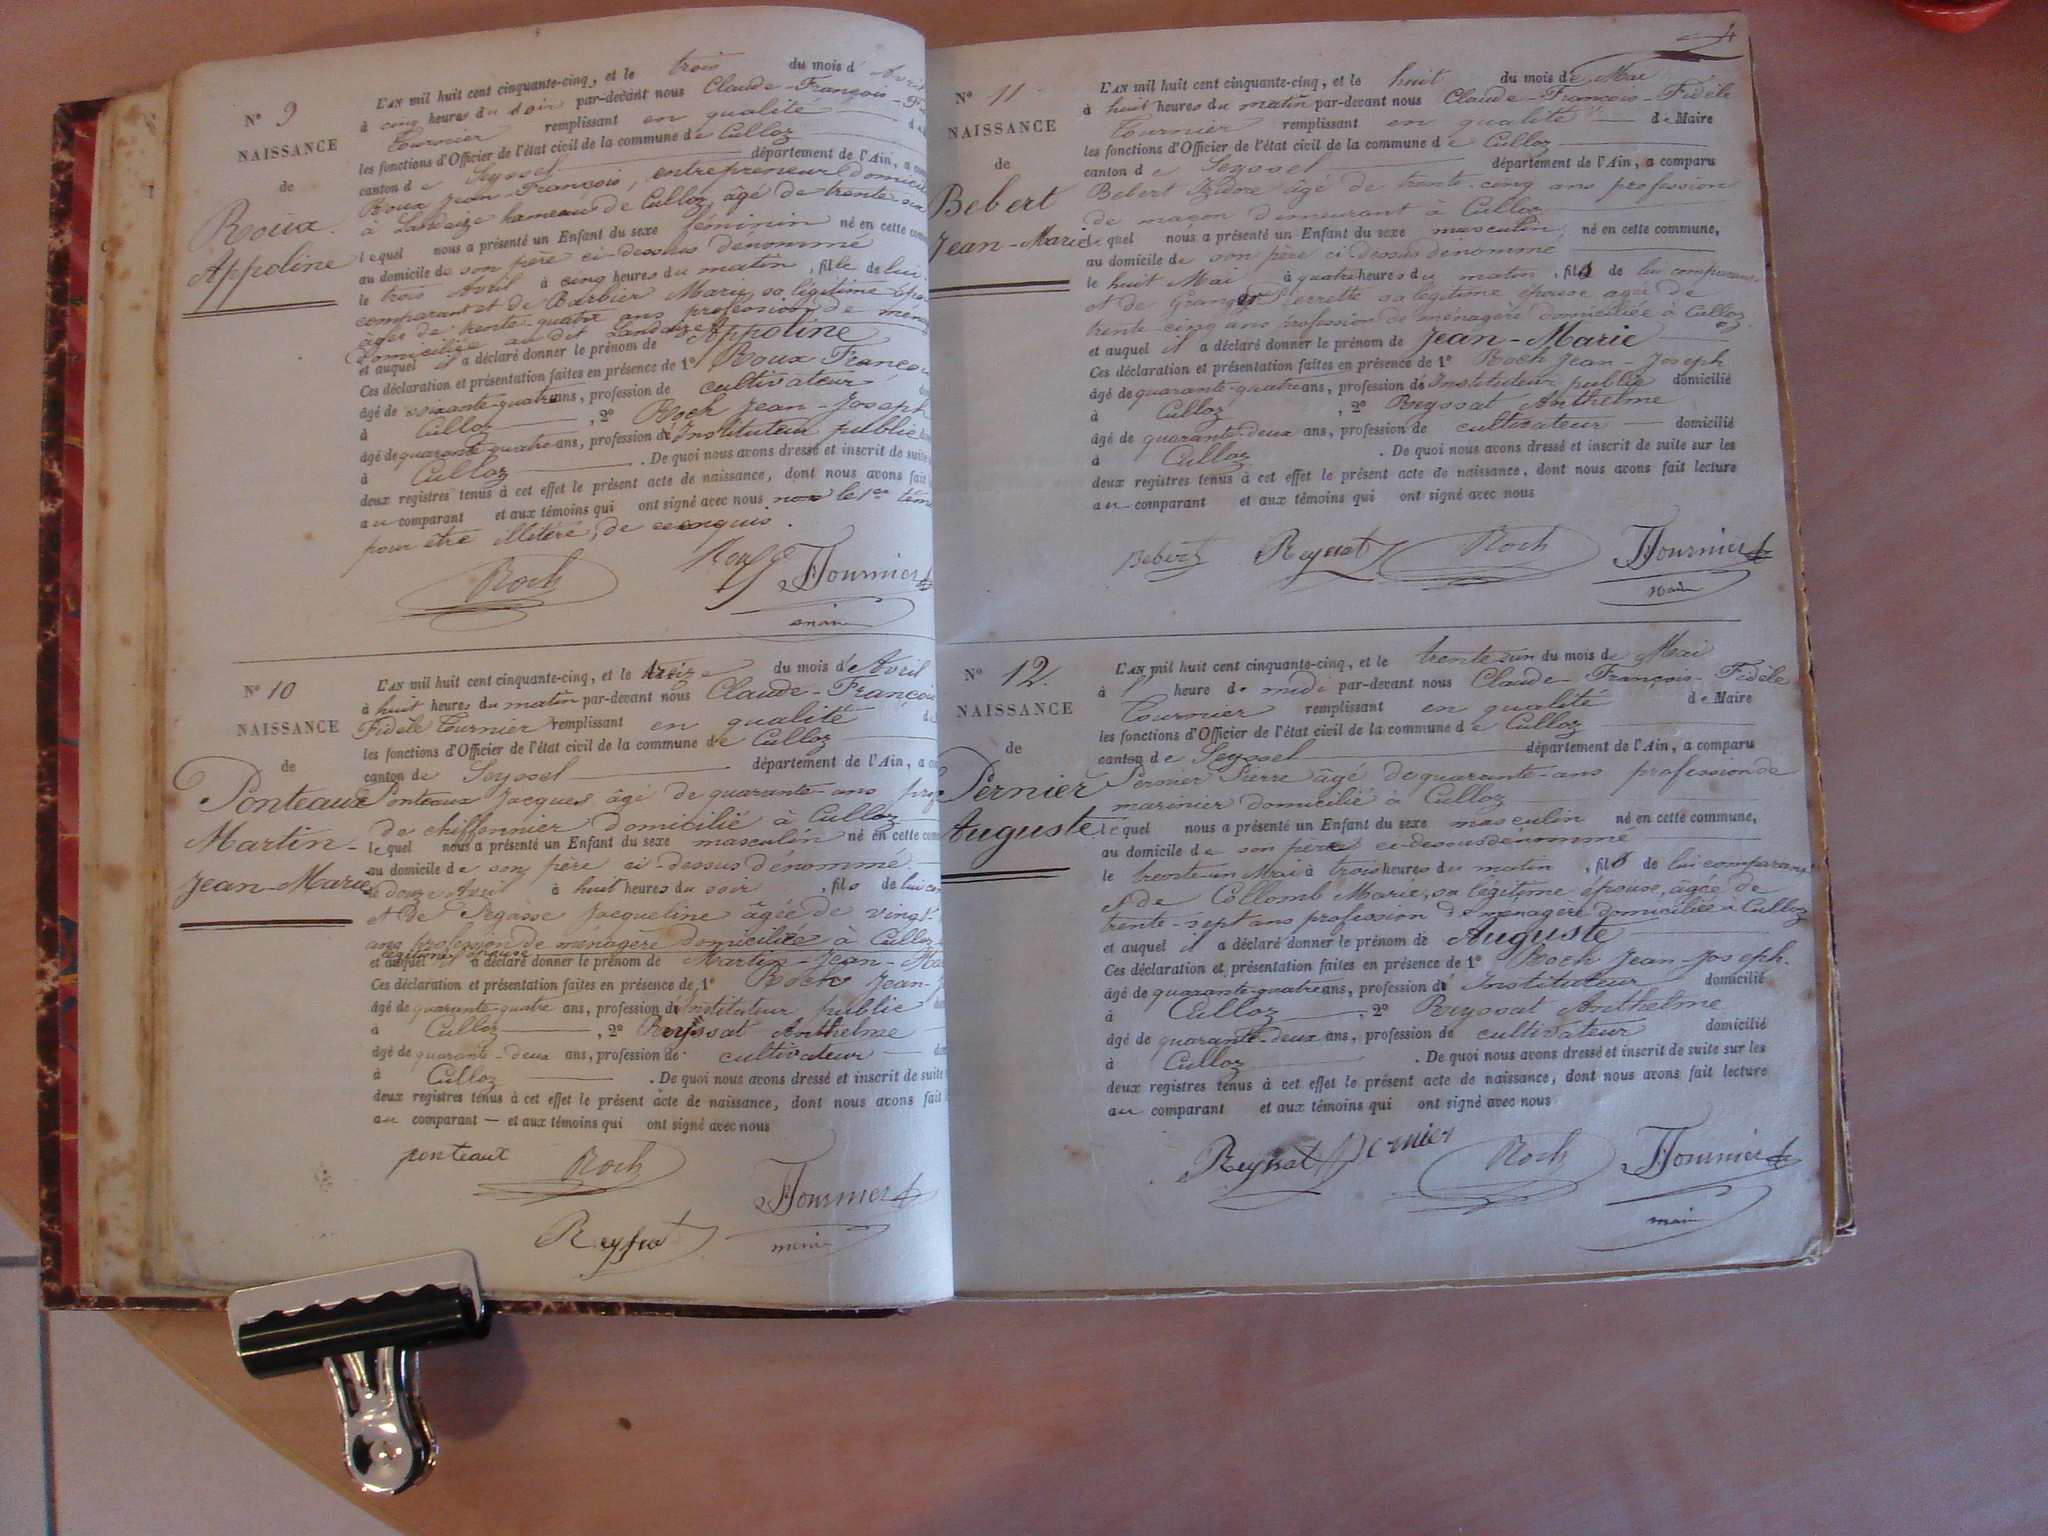 N° 9
NAISSANCE
de
Roux
Appoline
L'AN mil huit cent cinquante-cinq, et le trois du mois d'Avril
à cinq heures du soir par-devant nous Claude-François-
Tournier remplissant en qualité
les fonctions d'Officier de l'état civil de la commune de Culloz
canton de Seyssel département de l'Ain, a
Roux Jean-François, entrepreneur
à Landaize hameau de Culloz, âgé de trente-six
lequel nous a présenté un Enfant du sexe féminin né en cette
au domicile de son père ci-dessus dénommé
le trois Avril à cinq heures du matin, fille de lui
comparant et de Barbier Marie, sa légitime
âgée de trente-quatre ans profession de
domiciliée au dit Landaize
et auquel il a déclaré donner le prénom de Appoline
Ces déclaration et présentation faites en présence de 1° Roux
âgé de soixante-quatre ans, profession de cultivateur
à Culloz, 2° Roch Jean-Joseph
âgé de quarante-quatre ans, profession de Instituteur public
à Culloz. De quoi nous avons dressé et inscrit de suite
deux registres tenus à cet effet le présent acte de naissance, dont nous avons fait
au comparant et aux témoins qui ont signé avec nous non le 1er
pour être illitéré, de ce enquis.
Roch Tournier
maire
N° 10
NAISSANCE
de
Ponteaux
Martin-
Jean-Marie
L'AN mil huit cent cinquante-cinq, et le treize du mois d'Avril
à huit heures du matin par-devant nous Claude-François
Fidèle Tournier remplissant en qualité
les fonctions d'Officier de l'état civil de la commune de Culloz
canton de Seyssel département de l'Ain, a
Ponteaux Jacques âgé de quarante-ans
de chiffonnier domicilié à Culloz
lequel nous a présenté un Enfant du sexe masculin né en cette
au domicile de son père ci-dessus dénommé
le douze Avril à huit heures du soir, fils de lui
et de Jacqueline âgée de vingt-
ans profession de ménagère domiciliée à Culloz
légitime épouse
et auquel il a déclaré donner le prénom de Martin-Jean-
Ces déclaration et présentation faites en présence de 1° Roch Jean-
âgé de quarante-quatre ans, profession d'Instituteur public
à Culloz, 2° Reyssat Anthelme
âgé de quarante-deux ans, profession de cultivateur
à Culloz. De quoi nous avons dressé et inscrit de suite
deux registres tenus à cet effet le présent acte de naissance, dont nous avons fait
au comparant et aux témoins qui ont signé avec nous
ponteaux Roch Tournier
Reyssat maire
4
N° 11
NAISSANCE
de
Bebert
Jean-Marie
L'AN mil huit cent cinquante-cinq, et le huit du mois de Mai
à huit heures du matin par-devant nous Claude-François-Fidèle
Tournier remplissant en qualité de Maire
les fonctions d'Officier de l'état civil de la commune de Culloz
canton de Seyssel département de l'Ain, a comparu
Bebert Izidore âgé de trente-cinq ans profession
de maçon demeurant à Culloz
lequel nous a présenté un Enfant du sexe masculin, né en cette commune,
au domicile de son père ci-dessus dénommé
le huit Mai à quatre heures du matin, fils de lui comparant
et de Perrette sa légitime épouse âgée de
trente-cinq ans profession de ménagère domiciliée à Culloz
et auquel il a déclaré donner le prénom de Jean-Marie
Ces déclaration et présentation faites en présence de 1° Roch Jean-Joseph
âgé de quarante-quatre ans, profession de Instituteur public domicilié
à Culloz, 2° Reyssat Anthelme
âgé de quarante-deux ans, profession de cultivateur domicilié
à Culloz. De quoi nous avons dressé et inscrit de suite sur les
deux registres tenus à cet effet le présent acte de naissance, dont nous avons fait lecture
au comparant et aux témoins qui ont signé avec nous
Bebert Reyssat Roch Tournier
maire
N° 12
NAISSANCE
de
Pernier
Auguste
L'AN mil huit cent cinquante-cinq, et le trente un du mois de Mai
à 1 heure de midi par-devant nous Claude-François-Fidèle
Tournier remplissant en qualité de Maire
les fonctions d'Officier de l'état civil de la commune de Culloz
canton de Seyssel département de l'Ain, a comparu
Pernier Pierre âgé de quarante-ans profession de
marinier domicilié à Culloz
lequel nous a présenté un Enfant du sexe masculin né en cette commune,
au domicile de son père ci-dessus dénommé
le trente-un Mai à trois heures du matin, fils de lui comparant
et de Collomb Marie, sa légitime épouse, âgée de
trente-sept ans profession de ménagère domiciliée à Culloz
et auquel il a déclaré donner le prénom de Auguste
Ces déclaration et présentation faites en présence de 1° Roch Jean-Joseph.
âgé de quarante-quatre ans, profession d'Instituteur domicilié
à Culloz, 2° Reyssat Anthelme
âgé de quarante-deux ans, profession de cultivateur domicilié
à Culloz. De quoi nous avons dressé et inscrit de suite sur les
deux registres tenus à cet effet le présent acte de naissance, dont nous avons fait lecture
au comparant et aux témoins qui ont signé avec nous
Reyssat Pernier Roch Tournier
maire